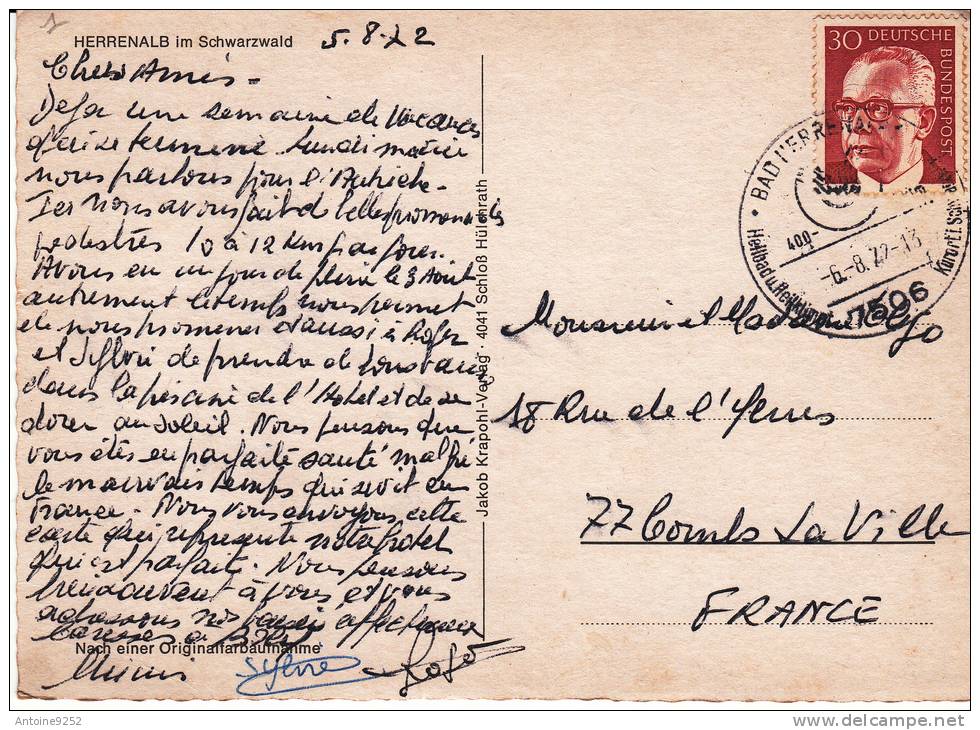 1
HERRENALB im Schwarzwald 5.8.72
Chers Amis -
Deja une semaine de Vacances
qui se termine. Lundi matin
nous partons pour l'Autriche.
Ici nous avons fait d belles promenades
pedestres 10 à 12 Kms par jour.
Avons eu un jour de pluie le 3 Août
autrement le temps nous permet
de nous promener et aussi à Roger
et Sylvie de prendre de bons bains
dans la piscine de l'Hotel et de se
dorer au soleil. Nous pensons que
vous êtes en parfaite santé malgré
le mauvais temps qui sévit en
France. Nous vous envoyons cette
carte qui represente notre hotel
qui est parfait. Nous pensons
à vous et vous
adressons nos baisers affectueux
Caresses a
Nach einer Originalfarbaufnahme
Mimi Sylvie
Jakob Krapohl-Verlag · 4041 Schloß Hülchrath
30 DEUTSCHE BUNDESPOST
BAD HERRENALB
-6.-8.72-13
7506
Monsieur et Madame
18 Rue de l'Yerres
77 Combs La Ville
FRANCE
Antoine9252
delcampe.net